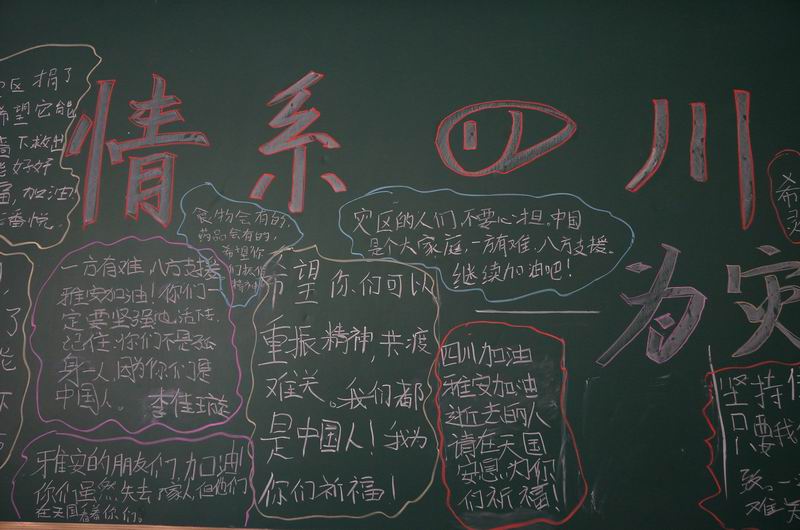 情系四川
为灾
区捐了
希望它能
下救出
能好好
加油
食物会有的,
药品会有的,
希望你
们
灾区的人们,不要心担,中国
是个大家庭,一方有难,八方支援。
继续加油吧!
一方有难,八方支援
雅安加油!你们一
定要坚强地活陆,
记住,你们不是孤
身一人,因为你们是
中国人。 李佳璇
希望你们可以
重振精神,共渡
难关。我们都
是中国人!我为
你们祈福!
四川加油
雅安加油
逝去的人
请在天国
安息,为你
们祈福!
雅安的朋友们,加油!
你们虽然失去了家人,但他们
在天国看着你们。
希
坚持
只要我
致。一
难关
了
能